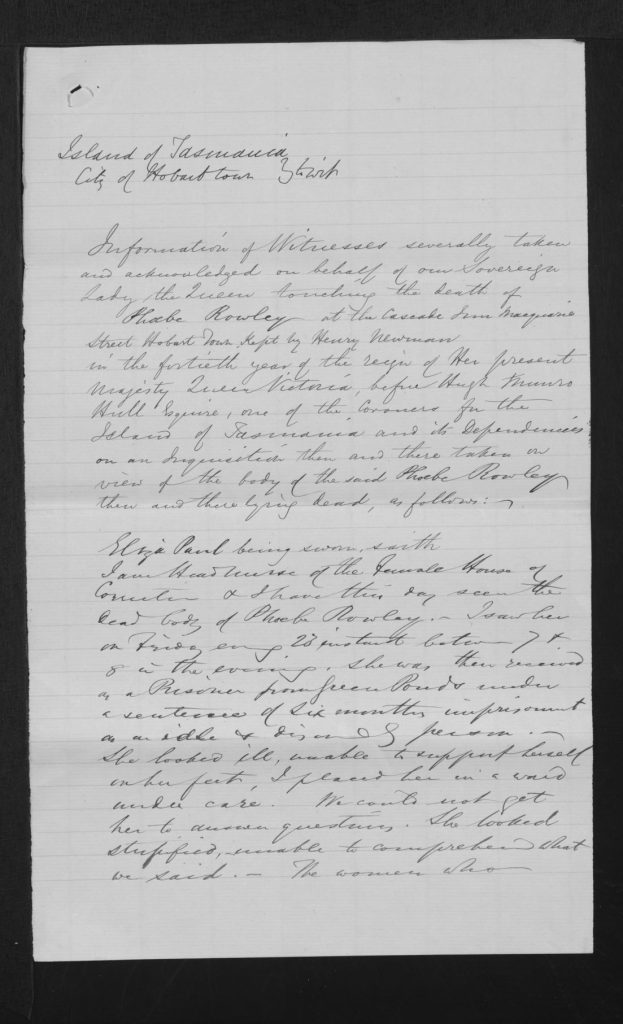 Island of Tasmania
City of Hobart town } to wit
Information of Witnesses severally taken
and acknowledged on behalf of our Sovereign
Lady the Queen touching the death of
Phœbe Rowley at the Cascade Inn Macquarie
Street Hobart Town Kept by Henry Newman
in the fortieth year of the reign of Her present
Majesty Queen Victoria, before Hugh Munro
Hull Esquire, one of the Coroners for the
Island of Tasmania and its Dependencies
on an Inquisition then and there taken on
view of the body of the said Phœbe Rowley
then and there lying dead, as follows:—
Eliza Paul being sworn, saith
I am Head nurse of the Female House of
Correction & I have this day seen the
dead body of Phœbe Rowley. — I saw her
on Friday eveng instant between 7 &
8 in the evening. She was then received
as a Prisoner from Green Ponds under
a sentence of six months imprisonment
as an idle & disorderly person. —
She looked ill, unable to support herself
on her feet, I placed her in a ward
under care. We could not get
her to answer questions. She looked
stupified, unable to comprehend what
we said. — The women who